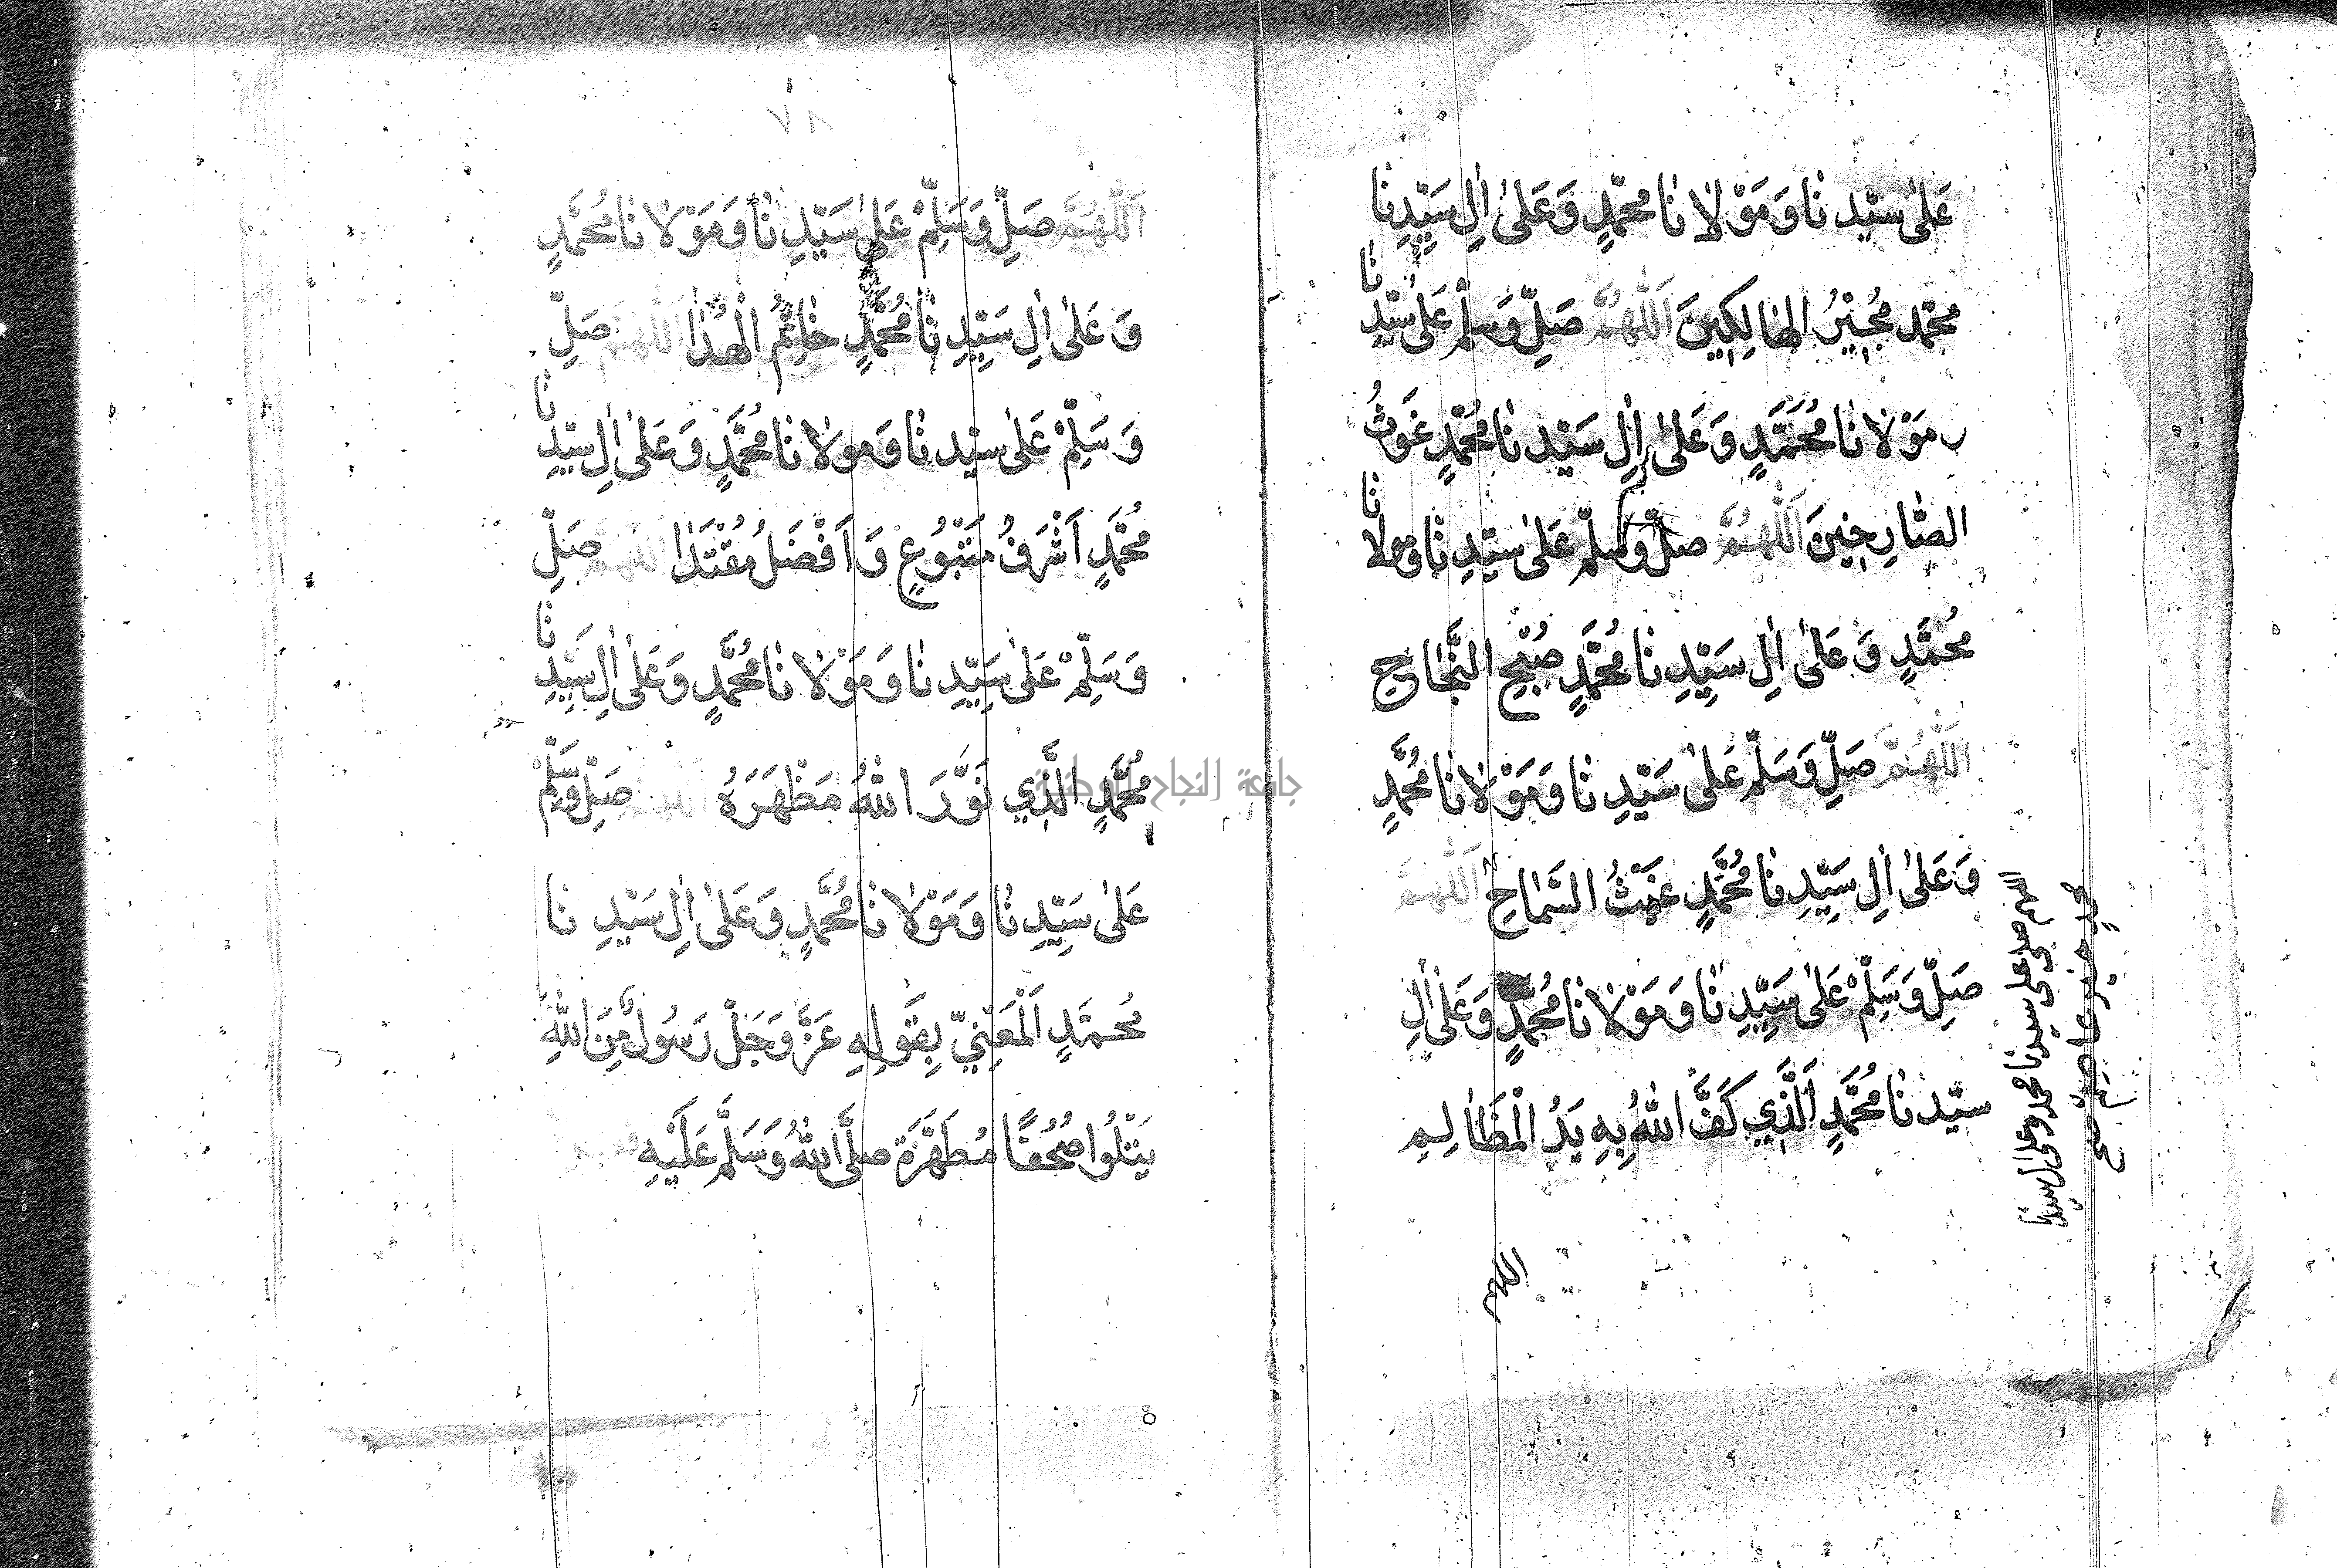 عَلىٰ سيّدنَا وَمَوْلَانَا محمّدٍ وَعَلىٰ اٰلِ سَيّدِنَا
محمّد مُجِيْرُ الهَالِكِينَ اَللّٰهُمَّ صَلِّ وَسلّم عَلىٰ سَيّدِنَا
ومَوْلَانَا مُحَمَّدٍ وَعَلىٰ اٰلِ سَيّدنَا مُحَمَّدٍ غَوثُ
الصَّارِخِينَ اَللّٰهُمَّ صلّ وسلّم عَلىٰ سيّدِنَا ومولانَا
مُحمَّدٍ وَعَلىٰ اٰلِ سَيّدِنَا مُحمَّدٍ صُبْحِ النَّجَاحِ
اَللّٰهُمَّ صَلِّ وَسَلّم عَلىٰ سَيّدِنَا وَمَوْلَانَا مُحَمَّدٍ
وَعَلىٰ اٰلِ سَيّدِنَا مُحَمَّدٍ غَيْثُ السَّمَاحِ اَللّٰهُمَّ
صَلِّ وَسَلِّمْ عَلىٰ سَيّدِنَا وَمَوْلَانَا مُحَمَّدٍ وَعَلىٰ اٰلِ
سيّدنَا مُحَمَّدٍ اَلَّذِي كَفَّ اللهُ بِهِ يَدُ الْمَظَالِمِ
اللهم صلى على سيدنا محمد وعلى ال سيدنا
محمد صح
اللهم
٧٨
اَللّٰهُمَّ صَلِّ وَسَلِّمْ عَلىٰ سَيّدِنَا وَمَوْلَانَا مُحَمَّدٍ
وَعَلىٰ اٰلِ سَيّدِنَا مُحَمَّدٍ خَاتِمُ الْهُدٰا اللّٰهُمَّ صَلِّ
وَسَلِّمْ عَلىٰ سيّدنَا وَمولانَا مُحَمَّدٍ وَعَلىٰ اٰلِ سَيّدِنَا
مُحَمَّدٍ اَشْرَفُ مَتْبُوْعٍ وَاَفْضَلُ مُقْتَدَا اَللّٰهُمَّ صَلِّ
وَسَلِّمْ عَلىٰ سَيّدِنَا وَمَوْلَانَا مُحَمَّدٍ وَعَلىٰ اٰلِ سَيّدِنَا
مُحَمَّدٍ الَّذِي نَوَّرَ اللهُ مَظْهَرَهُ اللّٰهُمَّ صَلِّ وَسَلِّمْ
عَلىٰ سَيّدِنَا وَمَوْلَانَا مُحَمَّدٍ وَعَلىٰ اٰلِ سَيّدِنَا
مُحمَّدٍ اَلْمَعْنِيِّ بِقَولِهِ عَزَّ وَجَلَّ رَسُولٌ مِنَ اللهِ
يَتْلُوا صُحُفًا مُطَهَّرَةً صلَّى اللهُ وَسَلَّمَ عَلَيْهِ
جامعة النجاح الوطنية